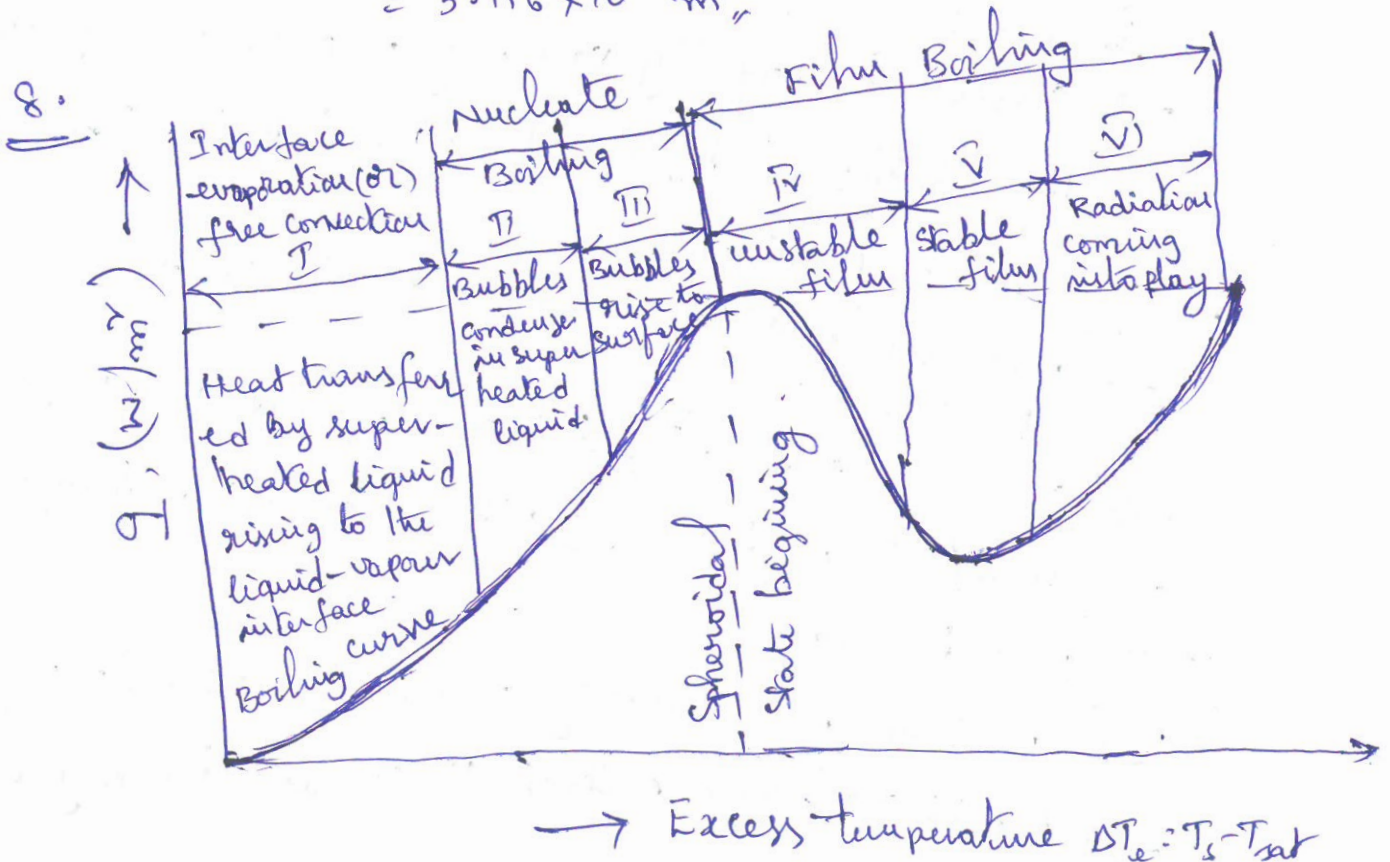 8.
Nucleate
Boiling
Film Boiling
Interface
evaporation (or)
free convection
I
II
III
IV
V
VI
Bubbles
condense
in super
heated
liquid
Bubbles
rise to
surface
unstable
film
stable
film
Radiation
coming
into play
Heat transferr
ed by super-
heated liquid
rising to the
liquid-vapour
interface
Boiling curve
q, (W/m²)
Spheroidal
State begining
Excess temperature ΔTe = Ts-Tsat